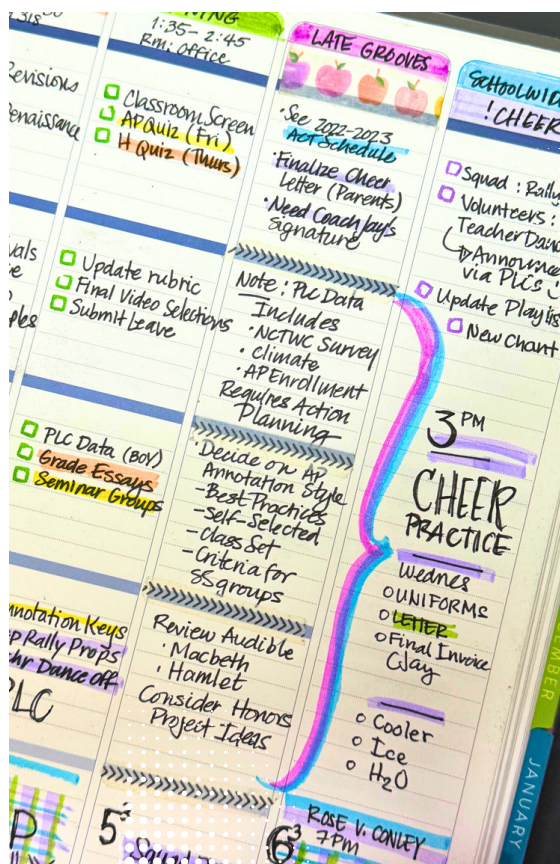 1:35-2:45
Rm: Office
Classroom Screen
AP Quiz (Fri)
H Quiz (Thurs)
Update rubric
Final Video Selections
Submit Leave
PLC Data (BOY)
Grade Essays
Seminar Groups
Annotation Keys
Rally Props
Dance off
PLC
5
LATE GROOVES
• See 2022-2023
ACT Schedule
• Finalize Cheer
Letter (Parents)
• Need Coach Jay's
Signature
Note: PLC Data
Includes
• NCTWC Survey
• Climate
• AP Enrollment
Requires Action
Planning
• Decide on AP
Annotation Style
- Best Practices
- Self-Selected
- Class Set
- Criteria for
SS groups
Review Audible
• Macbeth
• Hamlet
Consider Honors
Project Ideas
6
SCHOOLWID
! CHEER
Squad: Rally
Volunteers:
Teacher Danc
Announce
via PLCs
Update Playlis
New Chant
3 PM
CHEER
PRACTICE
Wednes
o UNIFORMS
o LETTER
o Final Invoice
Clay
o Cooler
o Ice
o H2O
ROSE V. CONLEY
7PM
MBER
JANUARY